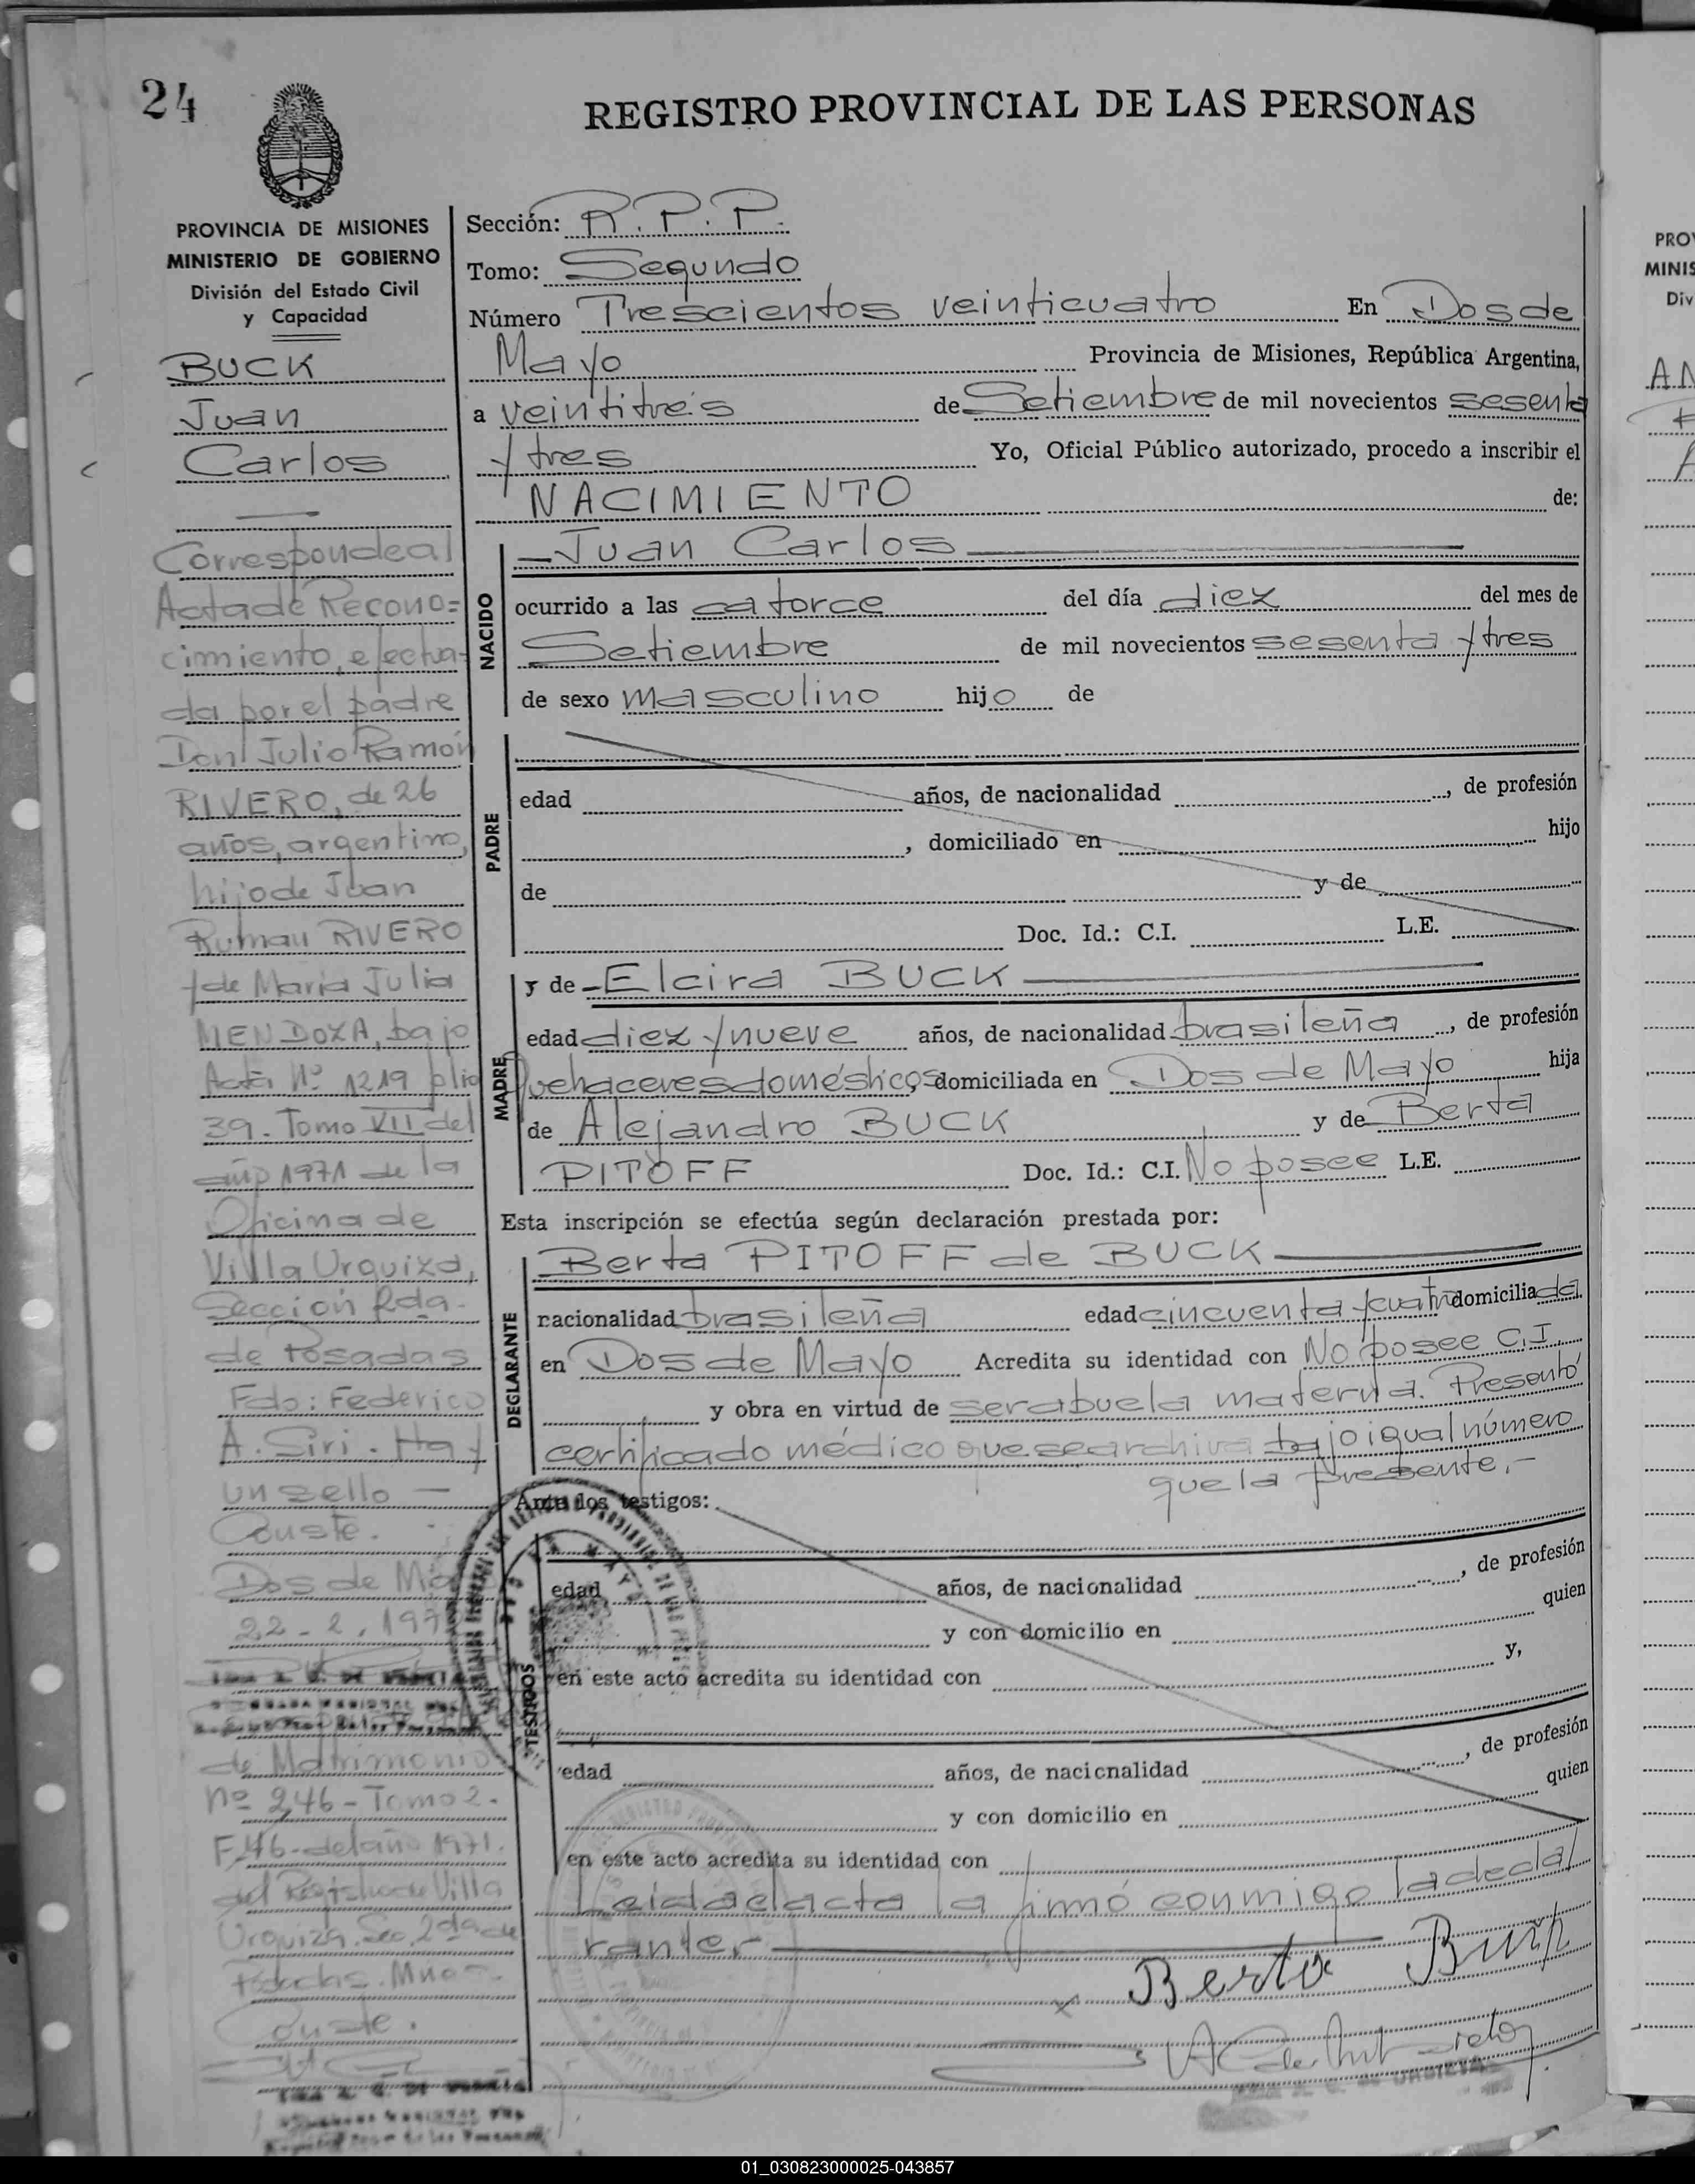 24
REGISTRO PROVINCIAL DE LAS PERSONAS
PROVINCIA DE MISIONES
MINISTERIO DE GOBIERNO
División del Estado Civil
y Capacidad
BUCK
Juan
Carlos
Corresponde al
Acta de Recono=
cimiento, efectua-
da por el padre
Don Julio Ramón
RIVERO, de 26
años, argentino,
hijo de Juan
RIVERO
y de María Julia
MENDOZA, bajo
Acta Nº 1219 folio
39. Tomo VII del
año 1971 de la
Oficina de
Villa Urquiza,
Sección 2da.
de Posadas
Fdo: Federico
A. Siri. Hay
un sello —
Conste.
Dos de Ma
22-2.197
de Matrimonio
Nº 246-Tomo 2.
F.46-del año 1971.
del Registro de Villa
Urquiza. Sec. 2da de
Posadas. Mnes.
Conste.
Sección: R.P.P.
Tomo: Segundo
Número Trescientos veinticuatro En Dos de
Mayo Provincia de Misiones, República Argentina,
a veintitrés de Setiembre de mil novecientos sesenta
y tres Yo, Oficial Público autorizado, procedo a inscribir el
NACIMIENTO de:
NACIDO
Juan Carlos
ocurrido a las catorce del día diez del mes de
Setiembre de mil novecientos sesenta y tres
de sexo masculino hijo de
PADRE
edad años, de nacionalidad , de profesión
, domiciliado en hijo
de y de
Doc. Id.: C.I. L.E.
MADRE
y de Elcira BUCK
edad diez y nueve años, de nacionalidad brasileña , de profesión
Quehaceres domésticos, domiciliada en Dos de Mayo hija
de Alejandro BUCK y de Berta
PITOFF Doc. Id.: C.I. No posee L.E.
Esta inscripción se efectúa según declaración prestada por:
DECLARANTE
Berta PITOFF de BUCK
nacionalidad brasileña edad cincuenta y cuatro domiciliada
en Dos de Mayo Acredita su identidad con No posee C.I.
y obra en virtud de ser abuela materna. Presentó
certificado médico que se archiva bajo igual número
que la presente.-
Ante los testigos:
TESTIGOS
edad años, de nacionalidad , de profesión
y con domicilio en quien
en este acto acredita su identidad con y,
edad años, de nacionalidad , de profesión
y con domicilio en quien
en este acto acredita su identidad con
Leida el acta la firmó conmigo la decla
ranter
Berta Buck
PROV
MINIS
Div
01_030823000025-043857